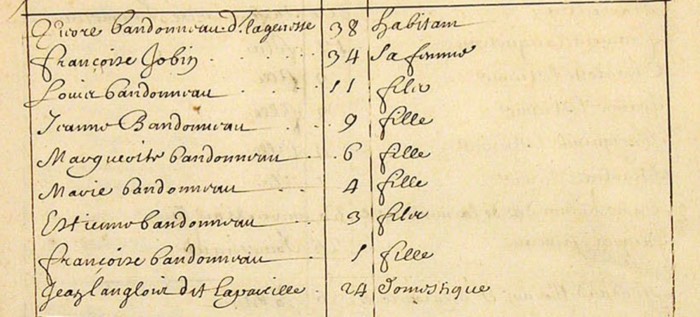 Picore bandonneau d. lagenesse 38 habitant
françoise Jobin . . . 34 Sa femme
Louis bandonneau . . 11 filz
Jeanne Bandonneau . . 9 fille
Marguerite bandonneau . 6 fille
Marie bandonneau . . . 4 fille
Estienne bandonneau . . 3 filz
françoise bandonneau . . 1 fille
Jean Langlois dit Lapareille 24 Domestique